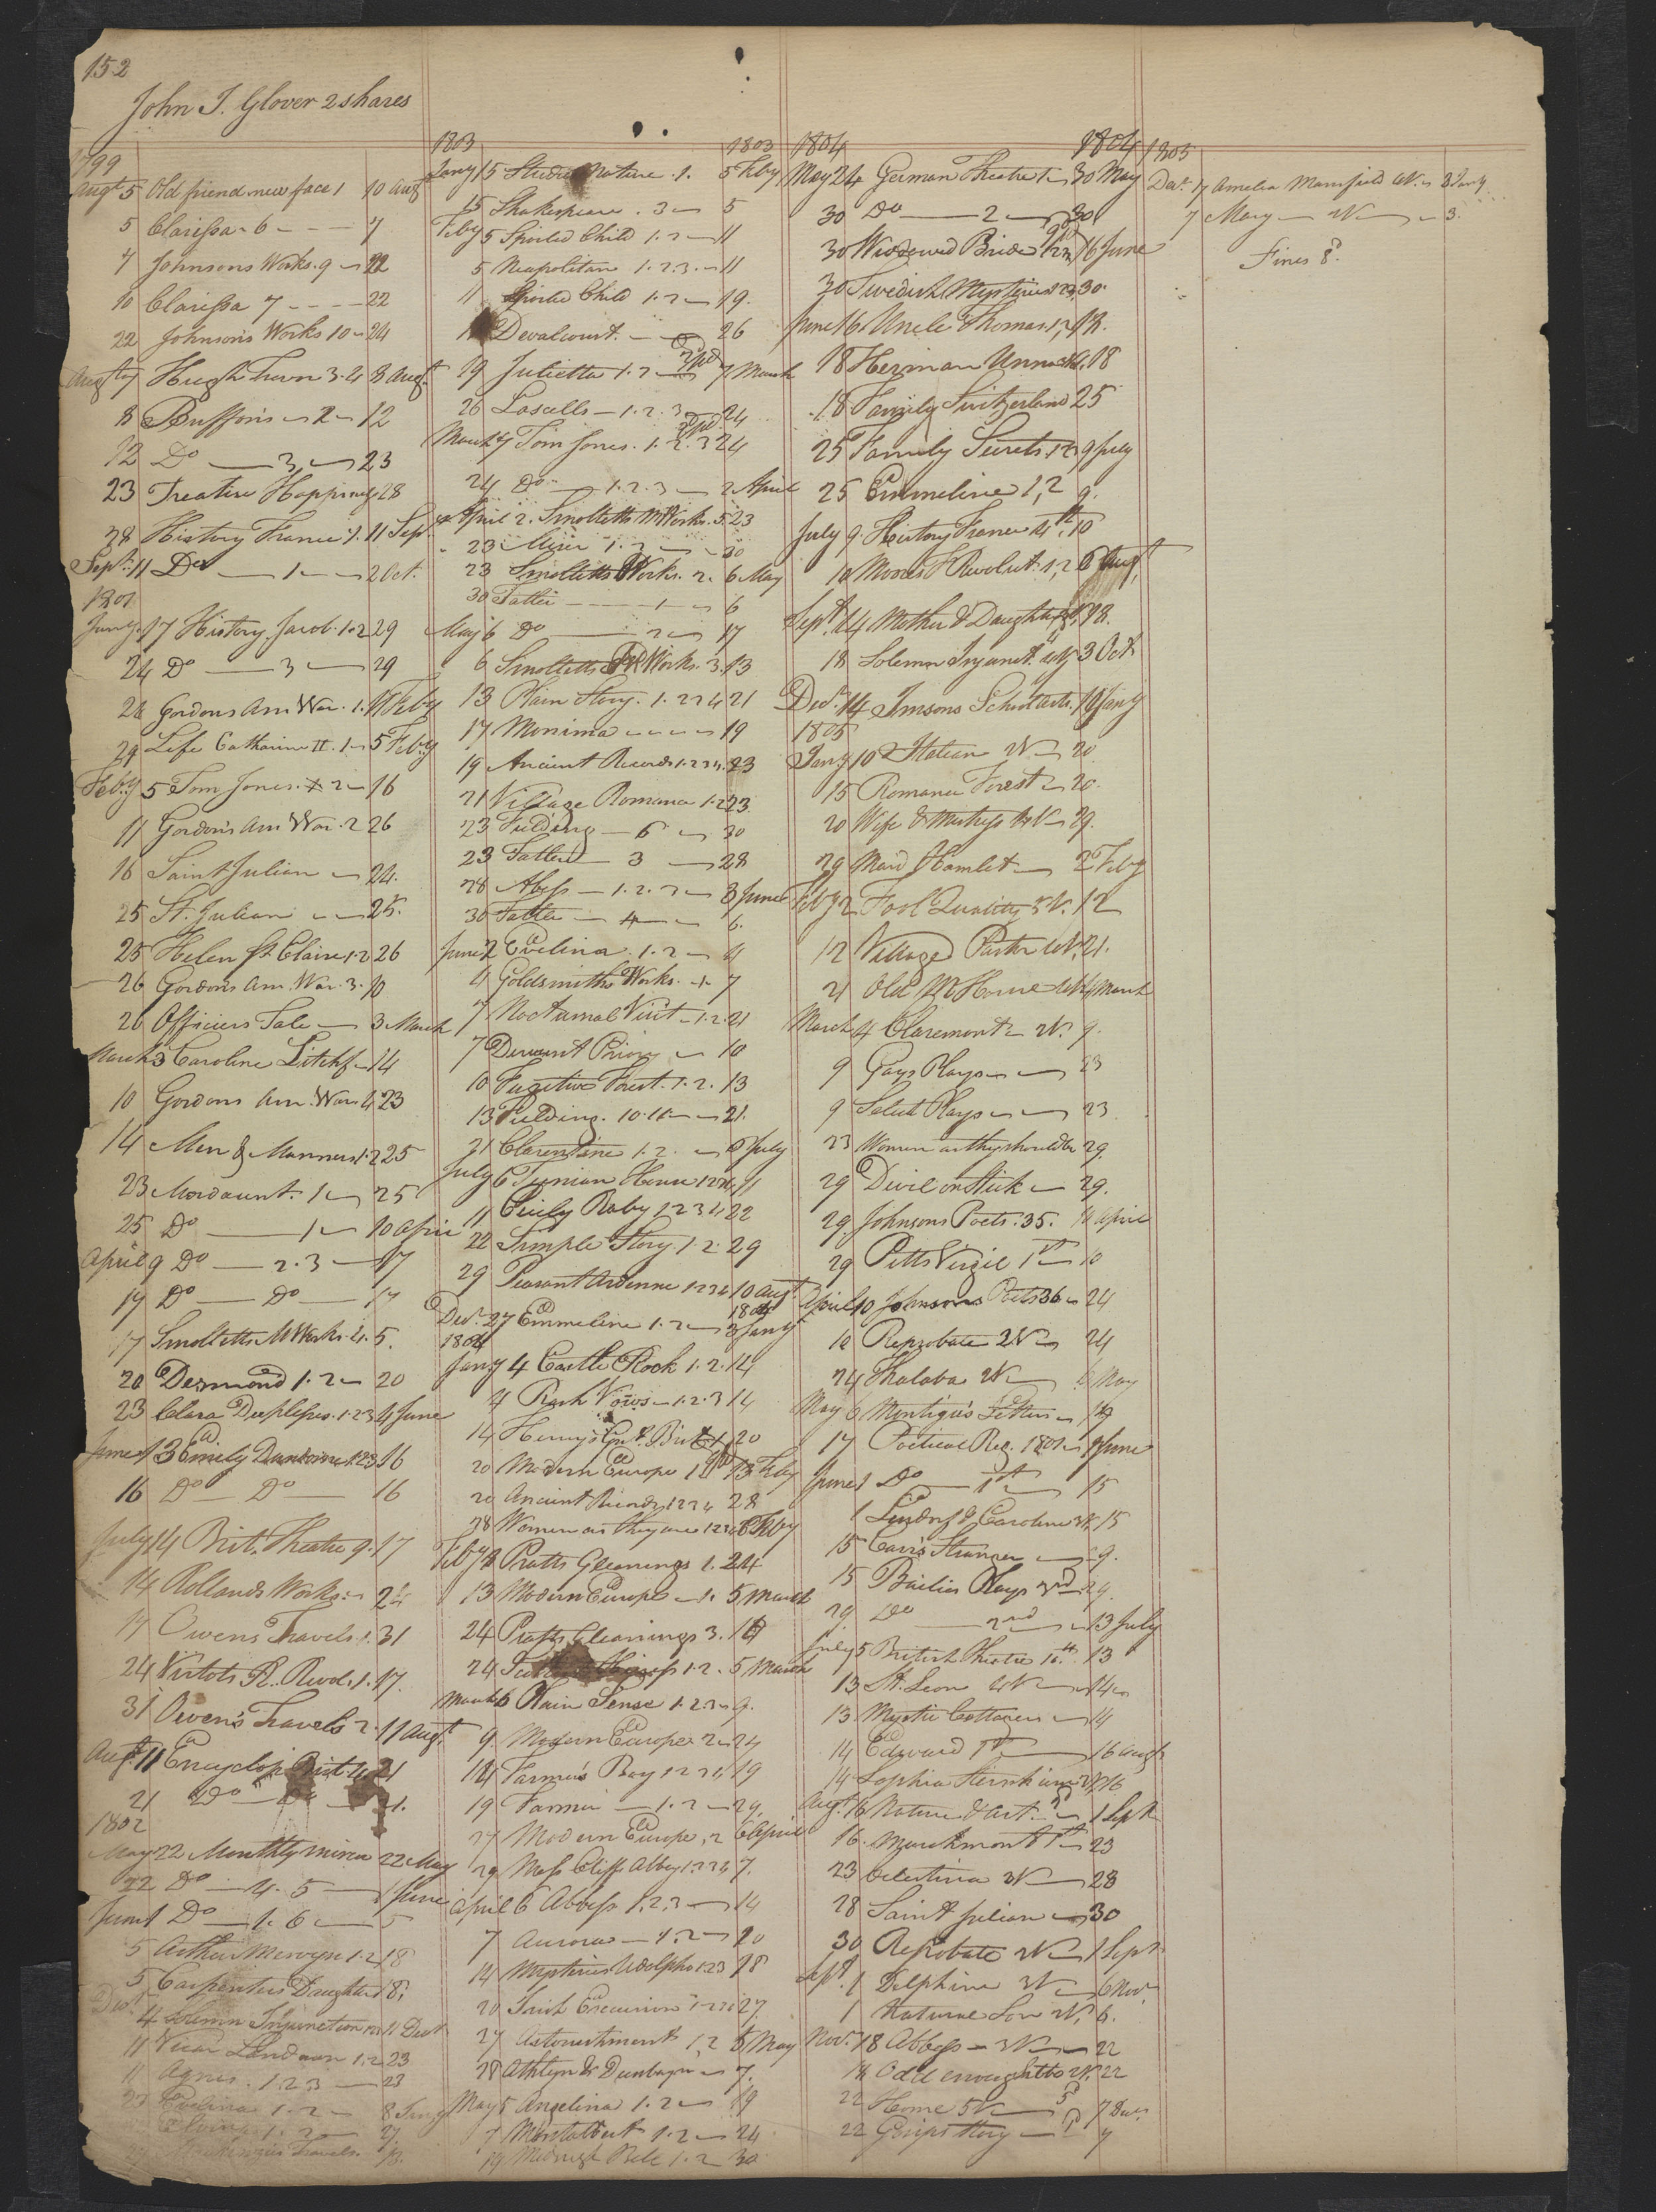 152
John J. Glover 2 shares
1799
Augt 5 Old friend new face 1 10 Augt
5 Clarissa - 6 - - - 7
7 Johnsons Works. 9 - 22
10 Clarissa 7 - - - - 22
22 Johnson's Works 10 - 24
Augt 7 Hugh Trevor 3.4 8 Augt
8 Buffon's - 2 - 12
12 Do - 3 - 23
23 Treatise Happiness 28
28 History France 1. 11 Sep
Sept. 11 Do - 1 - - 2 Oct.
1801
Jany. 17 History Jacob. 1.2 29
24 Do - 3 - 29
26 Gordons Am War. 1. 11 Feby
29 Life Catharine II. 1 - 5 Feby
Feby 5 Tom Jones. 2 - 16
11 Gordon's Am War. 2 26
16 Saint Julian - 24.
25 St. Julian - - 25.
25 Helen St Claire 1.2 26
26 Gordons Am. War. 3. 10
26 Officers Tale - 3 March
March 3 Caroline Litchf - 14
10 Gordons Am. War 4 23
14 Men & Manners 1.2 25
23 Mordaunt. 1 - 25
25 Do - 1 - 10 April
April 9 Do - 2.3 - 17
17 Do - Do - 17
17 Smolletts M Works. 4. 5.
20 Desmond 1.2 - 20
23 Clara Duplessis. 1.2.3 4 June
June 13 Emily 1.2.3 16
16 Do - Do - 16
July 14 Brit. Theatre 9. 17
14 Rollands Works. - 24
17 Owens Travels 1. 31
24 Vertots R. Revol. 1. 17.
31 Owen's Travels 2. 11 Augt.
Augt. 11 Encyclop Brit 4 21
21 Do - Do - 1.
1802
May 22 Monthly Mirror 22 May
22 Do - 4. 5 - 1 June
June 1 Do - 1. 6 - 5
5 Arthur Mervyn 1.2 18
5 Carpenters Daughter 18.
Decr. 4 Solemn Injunction 11 Decr
11 Vicar Lansdown 1.2 23
11 Agnes. 1.2.3 - 23
23 Evelina 1.2 - 8 Jany
1803 1803
Jany 15 Studies Nature. 1. 5 Feby
15 Shakespeare. 3 - 5
Feby 5 Spoiled Child 1.2 - 11
5 Neapolitan 1.2.3. - 11
11 Spoiled Child 1.2 - 19.
11 Devalcourt. - 26
19 Julietta 1.2 - 7 March
26 Lascells - 1.2.3 - 24
March 7 Tom Jones. 1.2.3 24
24 Do - 1.2.3 - 2 April
April 2. Smolletts M Works. 5. 23
23 1.2 - - 30
23 Smolletts Works. 2. 6 May
30 Tatler - - - 1 - 6
May 6 Do - 2 - 17
6 Smolletts Works. 3. 13
13 Plain Story. 1.2.3.4 21
17 Monima - - - - 19
19 Ancient Records 1.2.3.4. 23
21 Village Romance 1.2 23
23 Fielding - 6 - 30
23 Tatler - 3 - 28
28 Abess - 1.2.3 - 3 June
30 Tatler - 4 - - 6.
June 2 Evelina. 1.2 - 4
4 Goldsmiths Works. - 1 - 7
7 Nocturnal Visit - 1.2. 21
7 Derwent Priory - 10
10 Fugitive Forest. 1.2. 13
13 Fielding. 10.11 - - 21.
21 Clarentine 1.2. - 6 July
July 6 Fenian Henri 1.2.3.4. 11
11 Cicily Raby 1.2.3.4 22
22 Simple Story 1.2. 29
29 Peasant Ardenne 1.2.3.4 10 Augt
Decr. 27 Emmeline 1.2 - 3 Jany 1804
1804
Jany 4 Castle Rock 1.2. 14
4 Rash Vows - 1.2.3 14
14 Henry's Gt. Brit. 1. 20
20 Modern Europe 1 13 Feby
20 Ancient Records 1.2.3.4 28
28 Women as they are 1.2.3.4 Feby
Feby 8 Pratts Gleanings 1. 24
13 Modern Europe - 1. 5 March
24 Pratts Gleanings 3. 10
24 1.2. 5 March
March 6 Plain Sense 1.2.3 - 9.
9. Modern Europe 2 - 24
14 Farmers Boy 1.2.3.4 19
19 Farmer - 1.2 - 29.
27 Modern Europe, 2 6 April
29 Moss Cliff Abbey 1.2.3.4 7.
April 6 Abbess 1.2.3 - 14
7 Aurora - 1.2 - 20
14 Mysteries Udolpho 1.2.3 28
20 Irish Excursion 1.2.3.4 27
27 Astonishment 1.2 5 May
28 Athlyn & Dunbayn - 7.
May 5 Angelina 1.2 - 19
7 Montalbert 1.2 - 24
19 Midnight Bell 1.2 30
1804 1804
May 24 German Theatre 1 - 30 May
30 Do - 2 - 30
30 Widowed Bride 1.2.3 16 June
30 Swedish Mysteries 1.2.3, 30.
June 16 Uncle Thomas. 1,2 18.
18 Herman Unna 18
18 Family Switzerland 25
25 Family Secrets. 1.2.3 9 July
25 Emmeline 1,2 9.
July 9. History France 4th 10
10 Moores F Revolut. 1,2 6 Augt.
Sept. 14 Mother & Daughter 18.
18 Solemn Injunct. 4V 3 Oct
Decr. 14 School Arts. 10 Jany
1805
Jany 10 Italian 2V - 20
15 Romance Forest - 20.
20 Wife & Mistress 4V - 29.
29 Maid Hamlet - 2 Feby
Feby 2 Fool Quality 5V. 12
12 Village Pastor 1V. 21.
21 Old M House 4V 4 March
March 4 Claremont - 2V. 9.
9 Gays Plays - - 23
9 Select Plays - - 23
23 Women as they should be 29.
29 Devil on Stick - 29.
29. Johnsons Poets. 35. 10 April
29 Pitts Virgil 1st 10
April 10 Johnsons Poets 36 - 24
10 Reprobate 2V - 24
24 Thalaba 2V - 6 May
May 6 Montigu's Letters - 17
17 Poetical Reg. 1801 - 1 June
June 1 Do - 1st - 15
1 Lindorf & Caroline 3V. 15
15 Cavis Stranger - 29.
15 Bailies Plays 3rd - 29.
29. Do - 2nd - 13 July
July 5 British Theatre 10th. 13
13 St. Leon 4V - 14 -
13. Mystic Cottagers - 14
14 Edward 1st - 16 Augt
14 Sophia Sternheim 2V 16
Augt 16 Nature & Art. - 1 Sept
16. Marchmont 1st - 23
23 Celestina 3V - 28
28 Saint Julian - 30
30 Reprobate 2V - 1 Sept
Sept. 1 Delphine 3V - 6 Nov.
1 Natural Son 2V. 6.
Nov. 18 Abbess - 3V - 22
18 Odd enough 2V. 22
22 Home 5V - 7 Decr.
22 Gossips Story - 7
1805
Decr. 17 Amelia Mansfield 4V. - 3 Jany.
7 Mary - 2V - - 3.
Fines 8.